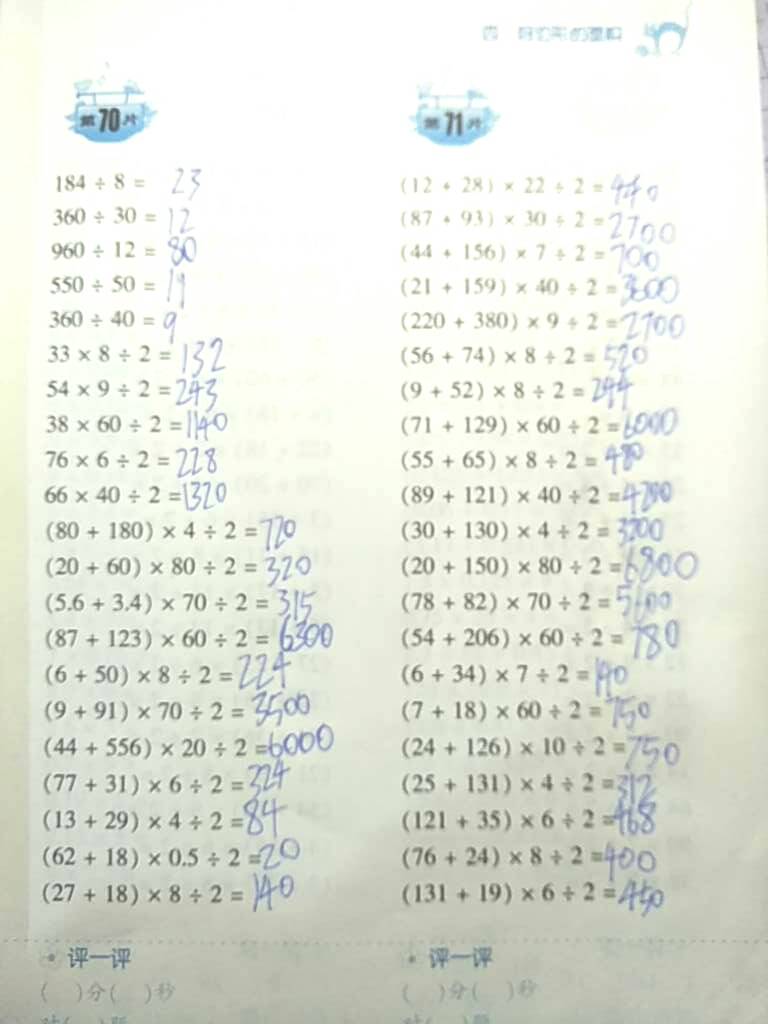 四 多边形的面积
第70片
184 ÷ 8 = 23
360 ÷ 30 = 12
960 ÷ 12 = 80
550 ÷ 50 = 11
360 ÷ 40 = 9
33 × 8 ÷ 2 = 132
54 × 9 ÷ 2 = 243
38 × 60 ÷ 2 = 1140
76 × 6 ÷ 2 = 228
66 × 40 ÷ 2 = 1320
(80 + 180) × 4 ÷ 2 = 720
(20 + 60) × 80 ÷ 2 = 320
(5.6 + 3.4) × 70 ÷ 2 = 315
(87 + 123) × 60 ÷ 2 = 6300
(6 + 50) × 8 ÷ 2 = 224
(9 + 91) × 70 ÷ 2 = 3500
(44 + 556) × 20 ÷ 2 = 6000
(77 + 31) × 6 ÷ 2 = 324
(13 + 29) × 4 ÷ 2 = 84
(62 + 18) × 0.5 ÷ 2 = 20
(27 + 18) × 8 ÷ 2 = 140
评一评
( )分( )秒
第71片
(12 + 28) × 22 ÷ 2 = 440
(87 + 93) × 30 ÷ 2 = 2700
(44 + 156) × 7 ÷ 2 = 700
(21 + 159) × 40 ÷ 2 = 3600
(220 + 380) × 9 ÷ 2 = 2700
(56 + 74) × 8 ÷ 2 = 520
(9 + 52) × 8 ÷ 2 = 244
(71 + 129) × 60 ÷ 2 = 6000
(55 + 65) × 8 ÷ 2 = 480
(89 + 121) × 40 ÷ 2 = 4200
(30 + 130) × 4 ÷ 2 = 3200
(20 + 150) × 80 ÷ 2 = 6800
(78 + 82) × 70 ÷ 2 = 5600
(54 + 206) × 60 ÷ 2 = 780
(6 + 34) × 7 ÷ 2 = 140
(7 + 18) × 60 ÷ 2 = 750
(24 + 126) × 10 ÷ 2 = 750
(25 + 131) × 4 ÷ 2 = 312
(121 + 35) × 6 ÷ 2 = 468
(76 + 24) × 8 ÷ 2 = 400
(131 + 19) × 6 ÷ 2 = 450
评一评
( )分( )秒